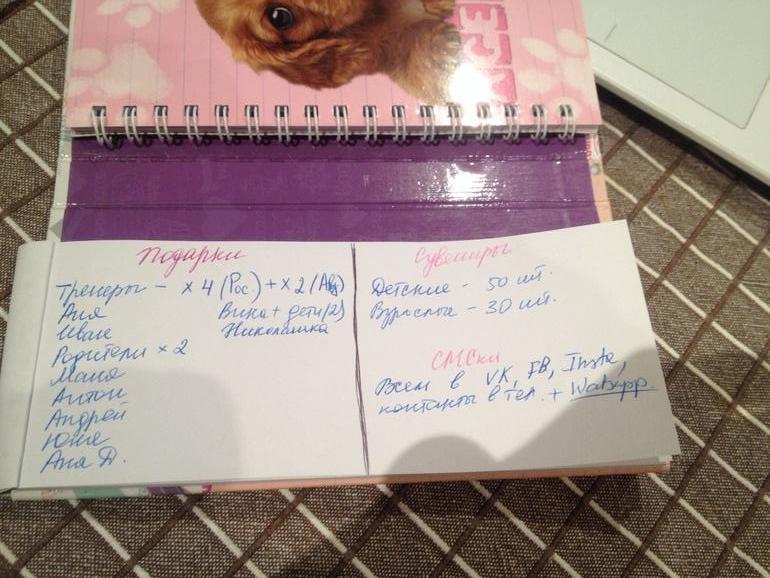 Подарки
Тренеры - x 4 (Рос) + x 2 (Авд)
Аня
Вика + дети (2)
Иван
Николашка
Родители x 2
Маня
Антон
Андрей
Юше
Аня Д.
Сувениры
Детские - 50 шт.
Взрослые - 30 шт.
СМСки
Всем в VK, FB, Insta,
контакты в тел. + Watsapp.